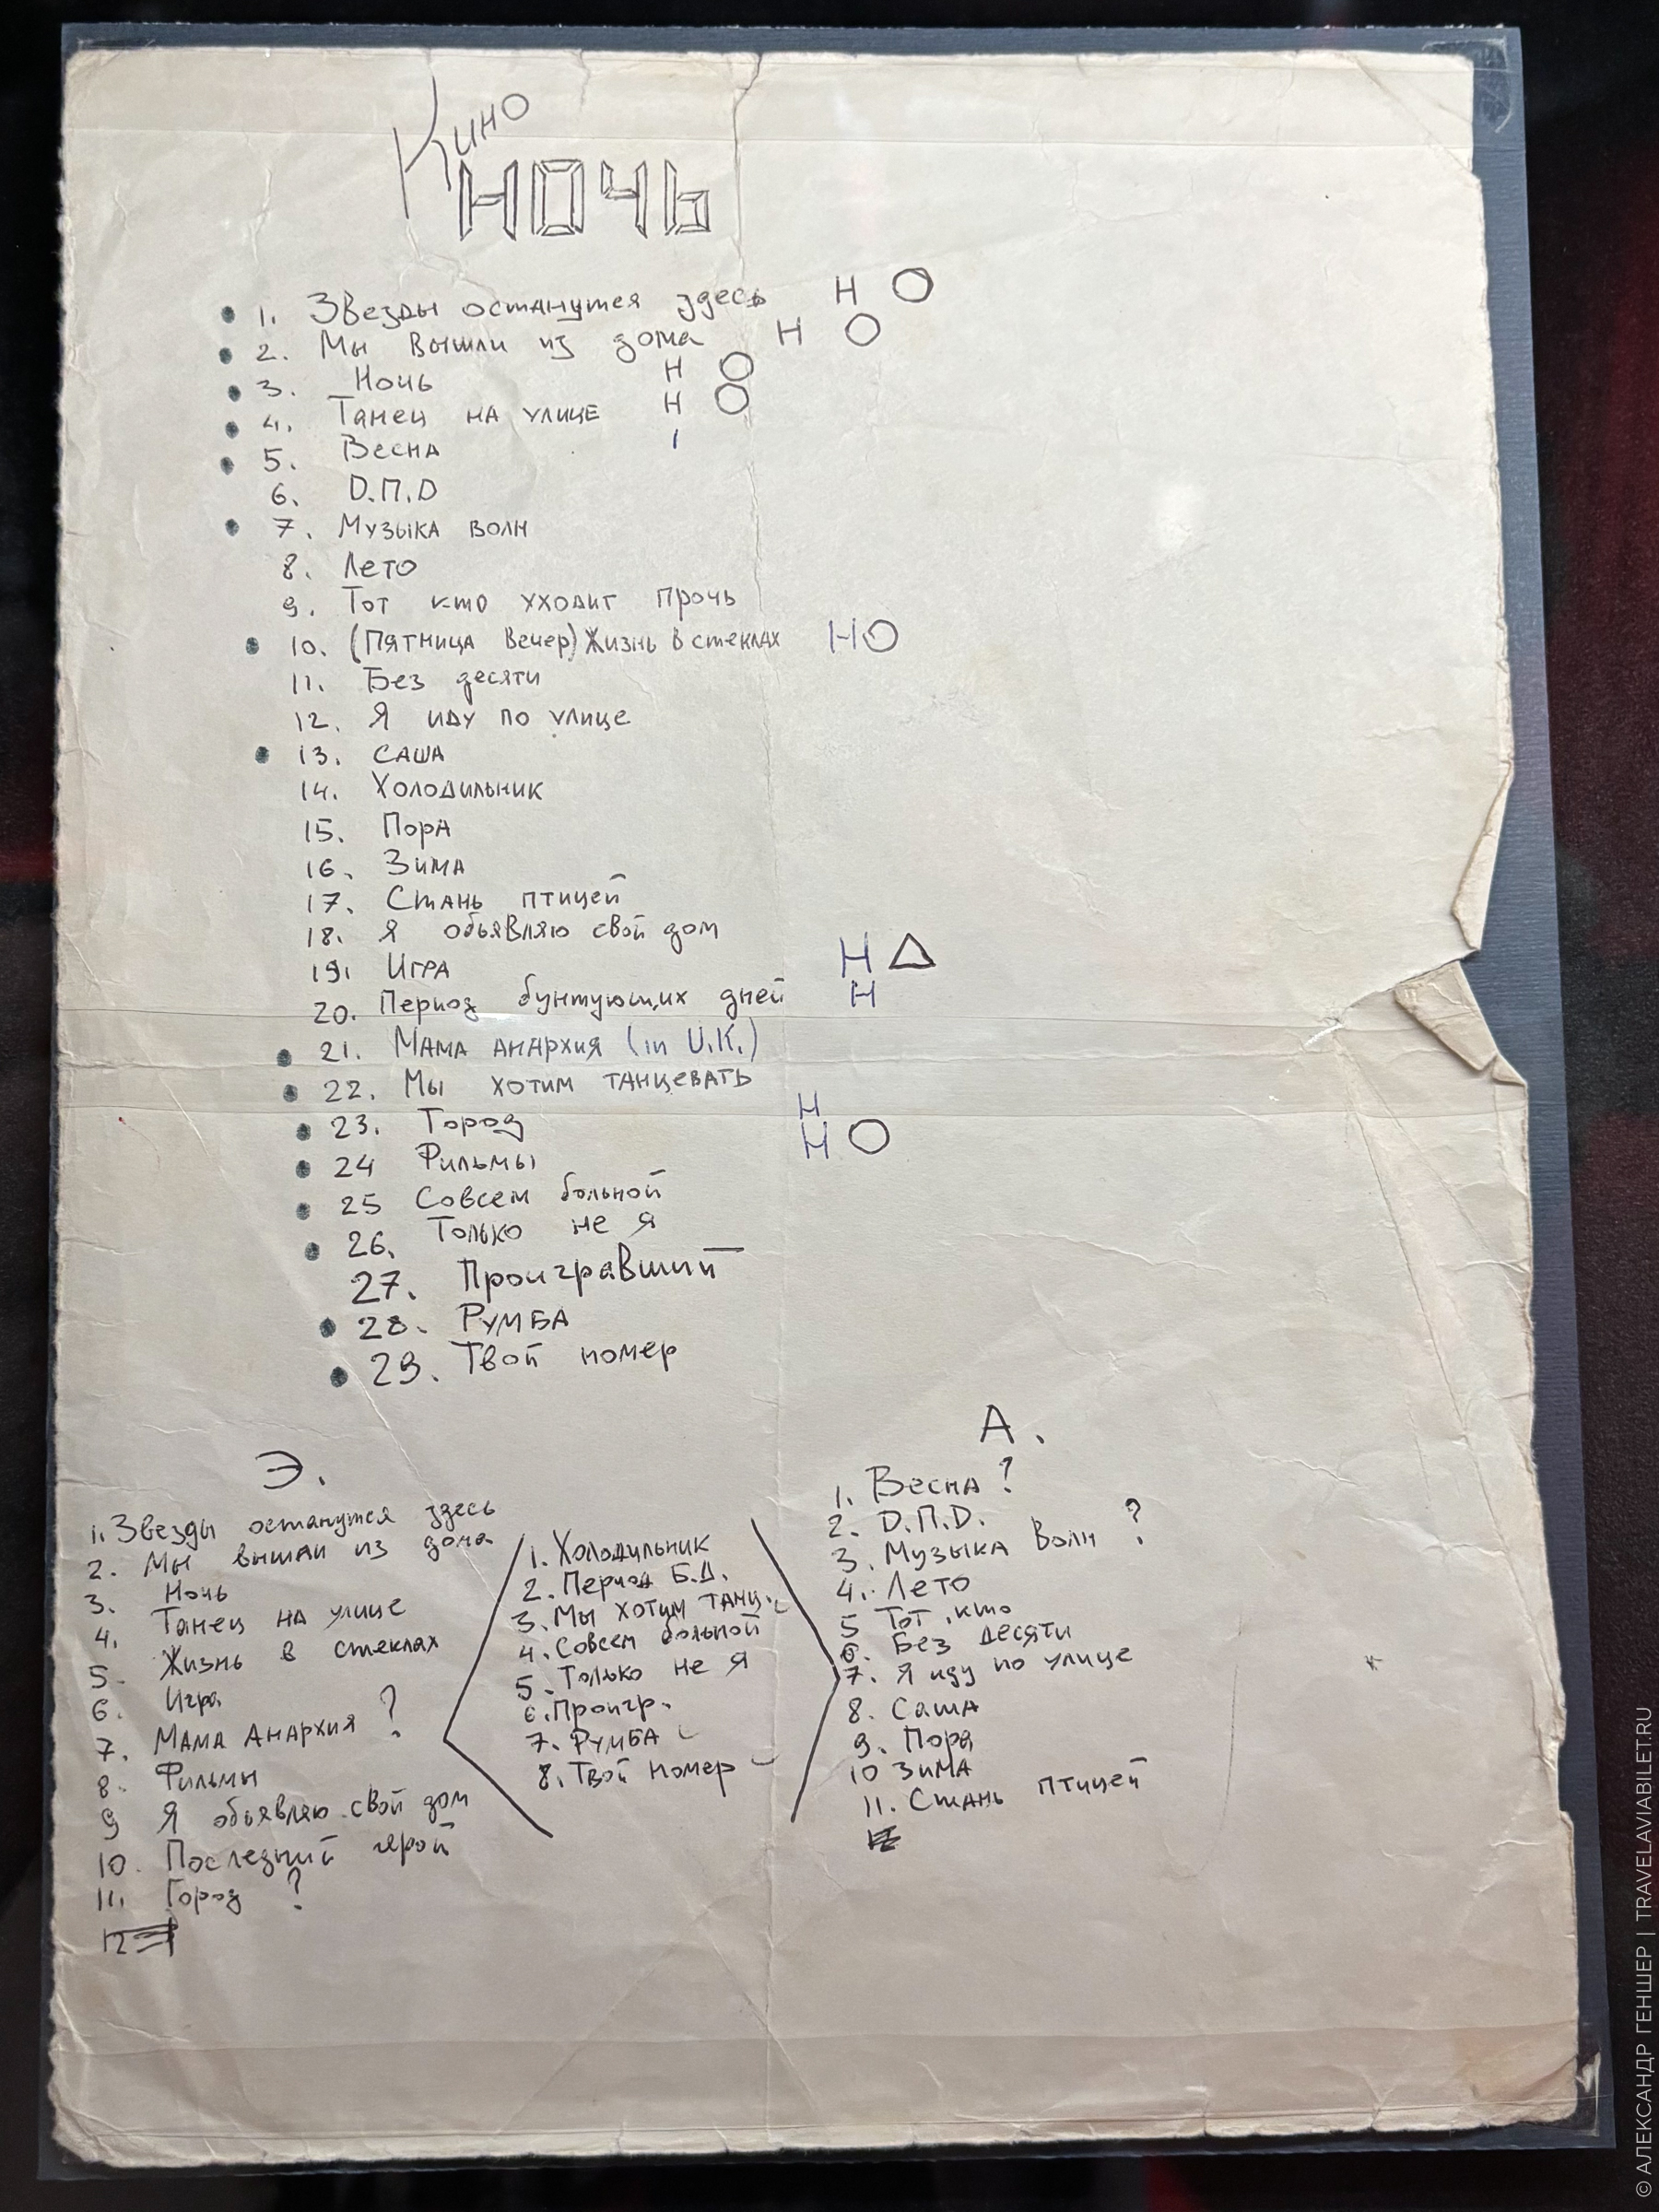 Кино
НОЧЬ
1. Звезды останутся здесь Н О
2. Мы вышли из дома Н О
3. Ночь Н О
4. Танец на улице Н О
5. Весна
6. D.П.D
7. Музыка волн
8. Лето
9. Тот кто уходит прочь
10. (Пятница вечер) Жизнь в стеклах НО
11. Без десяти
12. Я иду по улице
13. Саша
14. Холодильник
15. Пора
16. Зима
17. Стань птицей
18. Я обьявляю свой дом
19. Игра Н △
20. Период бунтующих дней Н
21. Мама анархия (in U.K.)
22. Мы хотим танцевать
23. Город Н
24 Фильмы Н О
25 Совсем больной
26. Только не я
27. Проигравший
28. Румба
29. Твой номер
Э.
1. Звезды останутся здесь
2. Мы вышли из дома
3. Ночь
4. Танец на улице
5. Жизнь в стеклах
6. Игра
7. Мама Анархия ?
8. Фильмы
9 Я обьявляю свой дом
10. Последний герой
11. Город ?
12
1. Холодильник
2. Период Б.Д.
3. Мы хотим танц.
4. Совсем больной
5. Только не я
6. Проигр.
7. Румба
8. Твой номер
А.
1. Весна ?
2. D.П.D.
3. Музыка Волн ?
4. Лето
5 Тот, кто
6. Без десяти
7. Я иду по улице
8. Саша
9. Пора
10 Зима
11. Стань птицей
© АЛЕКСАНДР ГЕНШЕР | TRAVELAVIABILET.RU